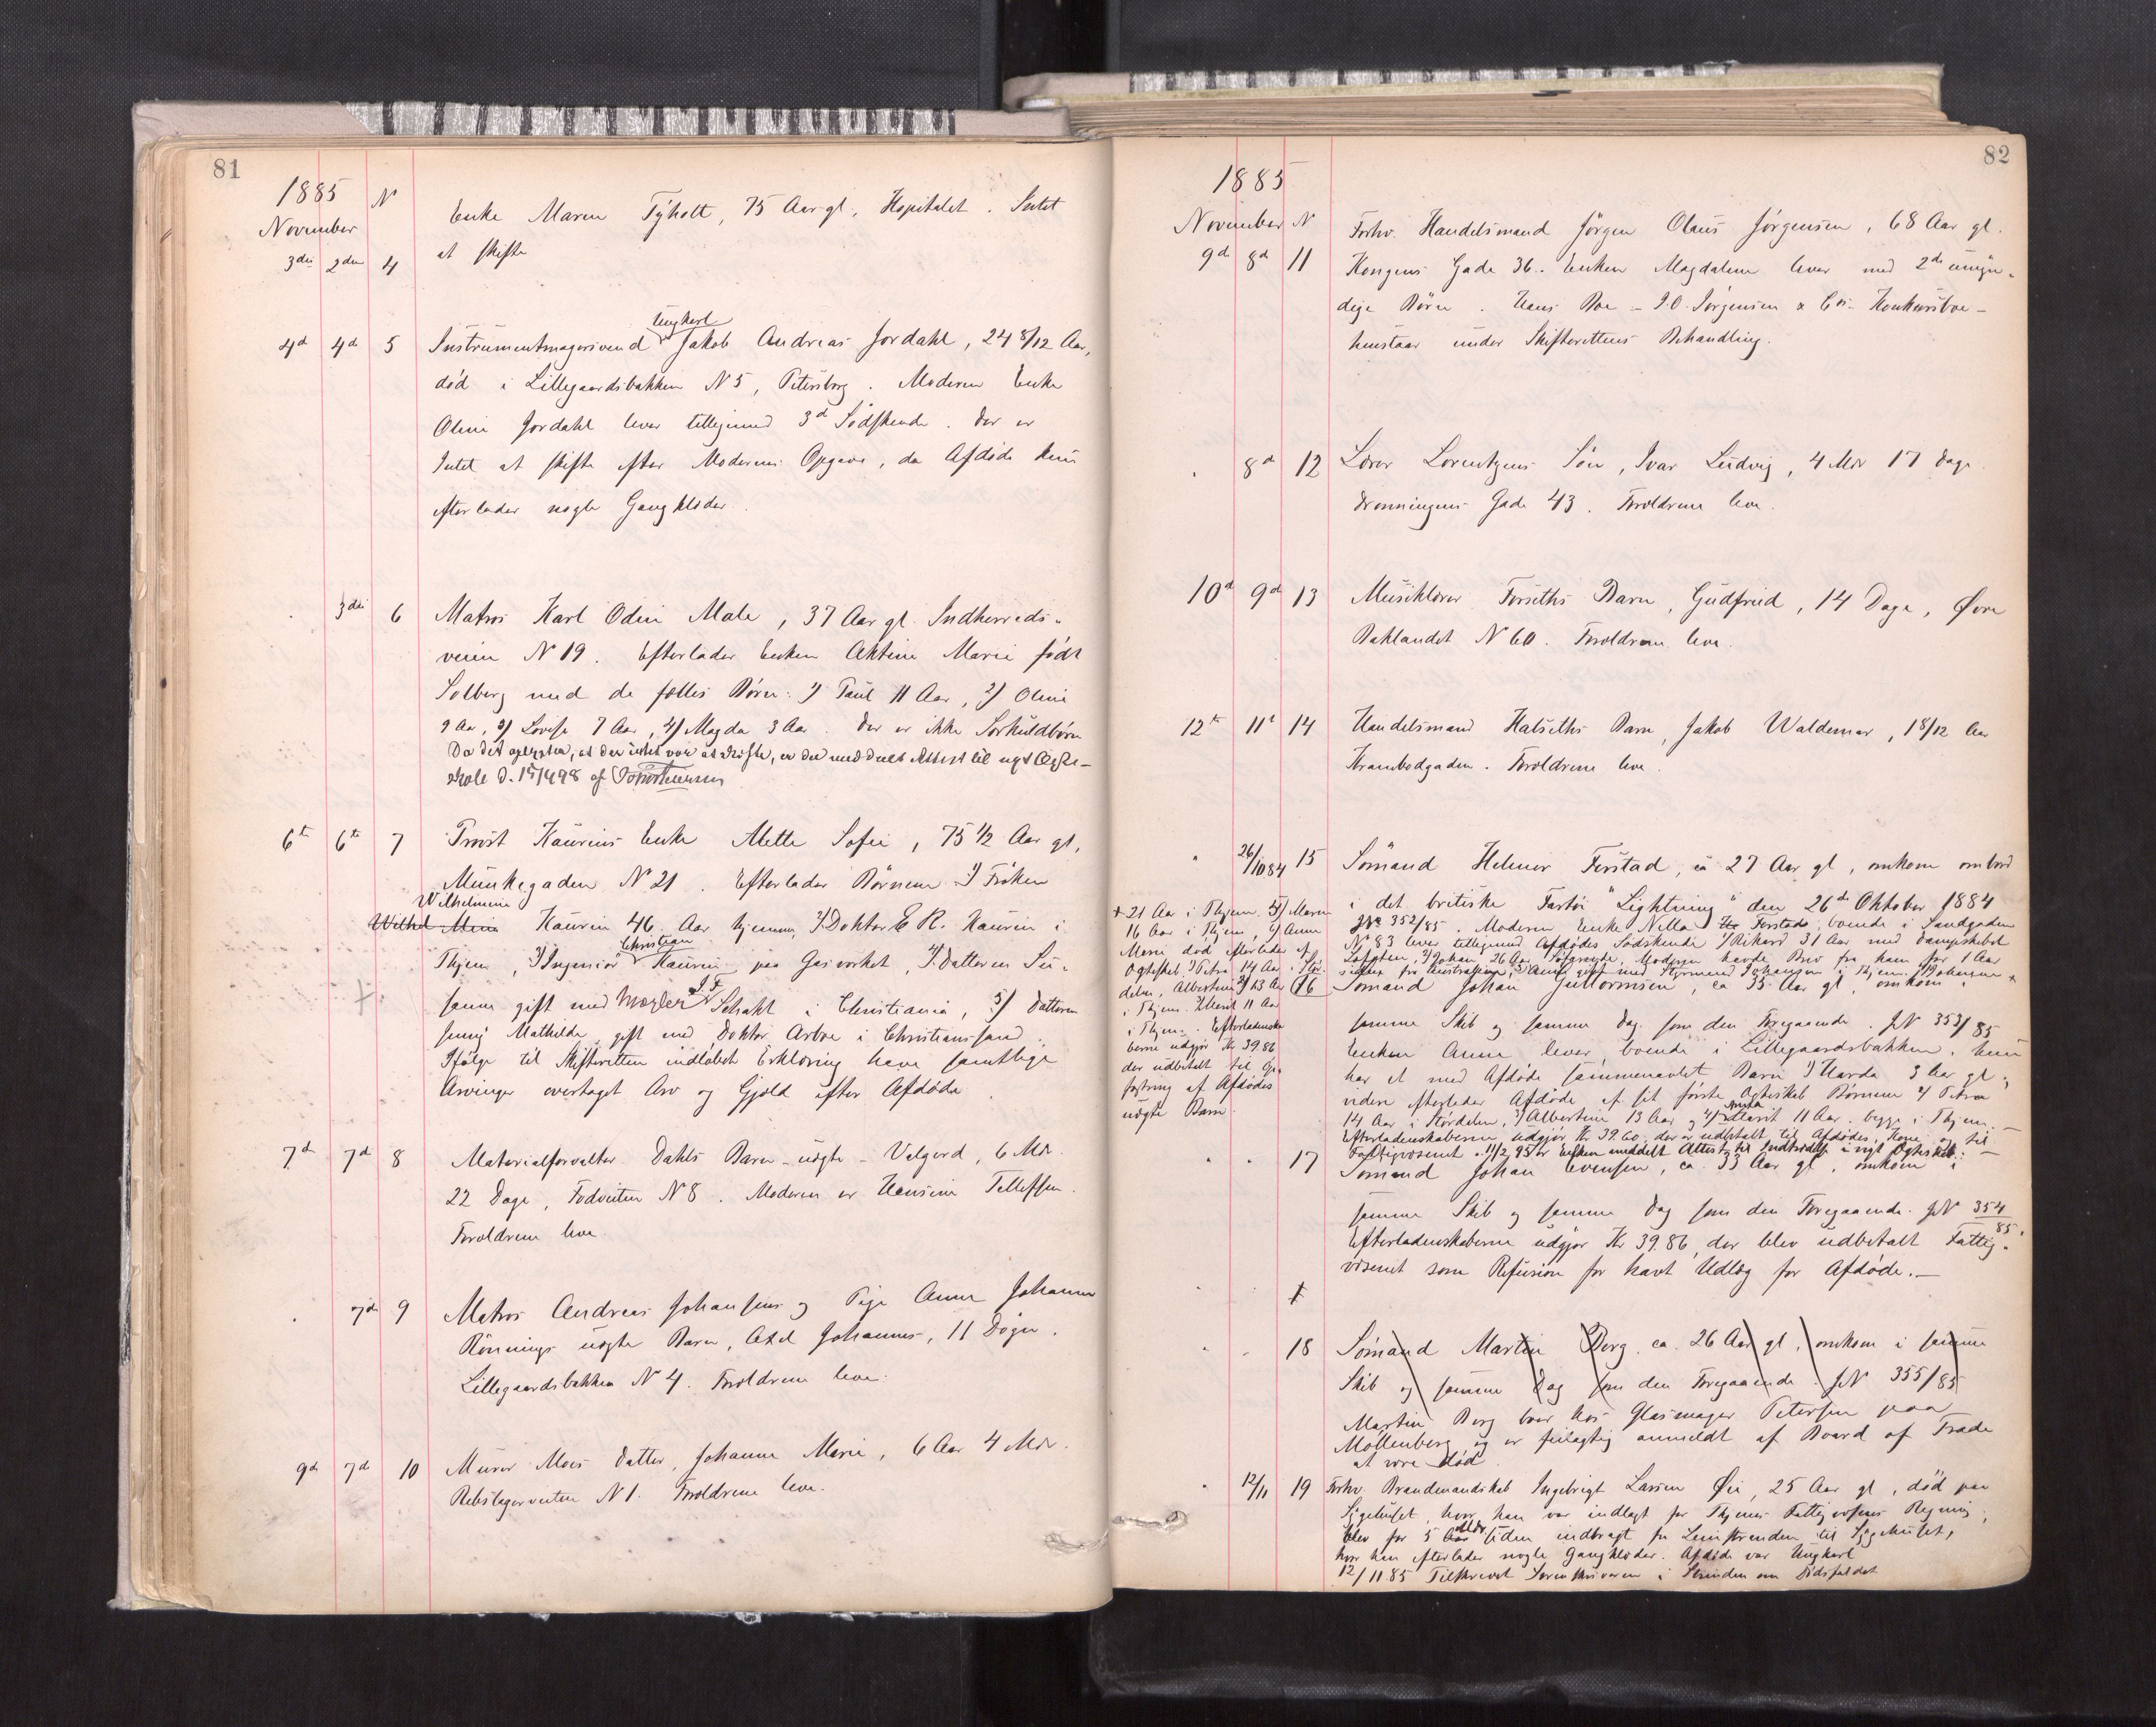 81
1885 N
November
Enke Maren Tyholt, 75 Aar gl., Hospitalet. Intet
3die 2den 4 at skifte
Ungkarl
4d 4d 5 Instrumentmagersvend Jakob Andreas Jordahl, 24 8/12 Aar,
död i Lillegaardsbakken N 5, Petersborg. Moderen Enke
Oline Jordahl lever tilligemed 3d Södskende. Der er
Intet at skifte efter Moderens Opgave, da Afdöde kun
efterlader nogle Gangklæder.
3die 6 Matros Karl Odin Male, 37 Aar gl. Indherreds-
veien N 19. Efterlader Enken Aktine Marie födt
Solberg med de fælles Börn: 1) Paul 11 Aar, 2) Oline
9 Aar, 3) Lovise 7 Aar, 4) Magda 3 Aar. Der er ikke Særkuldbörn
Da det oplystes, at der intet var at skifte, er der meddelt Attest til nyt Ægte-
skab d. 15/4 98 af
6te 6te 7 Provst Kaurins Enke Mette Sofie, 75 1/2 Aar gl,
Munkegaden N 21. Efterlader Börnene 1) Fröken
Wilhelmine
Wilhel Mina Kaurin 46 Aar hjemme, 2) Doktor E R. Kaurin i
Christian
Thjem, 3) Ingeniör Kaurin paa Gasværket, 4) Datteren Su-
J. F.
sanne gift med Mægler Schakt i Christiania, 5) Datteren
Jenny Mathilde, gift med Doktor Arboe i Christianssand.
Ifölge til Skifteretten indlöbet Erklæring have samtlige
Arvinger overtaget Arv og Gjæld efter Afdöde.
7d 7d 8 Materialforvalter Dahls Barn - uægte - Valgerd, 6 Mdr
22 Dage, Fodveiten N 8. Moderen er Hansine Tellefsen.
Forældrene leve
7de 9 Matros Andreas Johansens og Pige Anne Johanne
Rönnings uægte Barn, Axel Johannes, 11 Dögn.
Lillegaardsbakken N 4. Forældrene leve.
9de 7de 10 Murer Moes Datter, Johanne Marie, 6 Aar 4 Mdr.
Rebslagerveiten N 1. Forældrene leve.
82
1885
November N
Forhv. Handelsmand Jörgen Olaus Jörgensen, 68 Aar gl.
9de 8d 11 Kongens Gade 36. Enken Magdalene lever med 2de umyn-
dige Börn. Hans Bo - J. O. Jörgensen & Cos Konkursbo -
henstaar under Skifterettens Behandling.
8d 12 Lærer Lorentzens Sön, Ivar Ludvig, 4 Mdr 17 Dage
Dronningens Gade 43. Forældrene leve.
10d 9d 13 Musiklærer Forseths Barn, Gudfrid, 14 Dage, Øvre
Baklandet N 60. Forældrene leve.
12te 11t 14 Handelsmand Halseths Barn, Jakob Waldemar, 1 8/12 Aar
Krambodgaden. Forældrene leve.
26/10 84 15 Sömand Helmer Ferstad, ca 27 Aar gl, omkom ombord
i det britiske Fartöi "Lightning" den 26de Oktober 1884
JN 352/85. Moderen Enke Nella Ferstad, boende i Sandgaden
N 83 lever tilligemed Afdödes Södskende 1) Rikard 31 Aar med Dampskibet
Lofoten, 2) Johan 26 Aar Söfarende, Moderen havde Brev fra ham for 1 Aar
siden fra Australien, 3) gift med Styrmand Johansen i Thjem. 4) Johanne x
x 21 Aar i Thjem 5) Maren
16 Aar i Thjem, 6) Anne
Marie död efterlader af
Ægteskab 1) Petra 14 Aar i Stör-
dalen, Albertine 2) 13 Aar
i Thjem. Marit 11 Aar
i Thjem. Efterladenska-
berne udgjör Kr 39.86
der udbetalt til Op-
fostring af Afdödes
uægte Barn.
16 Sömand Johan Guttormsen, ca 35 Aar gl, omkom i
samme Skib og samme Dag som den Foregaaende. JN 353/85
Enken Anne lever, boende i Lillegaardsbakken. Hun
har et med Afdöde sammenavlet Barn 1) Harda 3 Aar gl,
videre efterlader Afdöde af sit förste Ægteskab Börnene 2) Petra
14 Aar i Stördalen, 3) Albertine 13 Aar og 4) Marit 11 Aar, begge i Thjem. -
Efterladenskaberne udgjör Kr 39.60. der er udbetalt til Afdödes Kone og til
Fattigvæsenet. 11/2 95 er Enken meddelt Attest til Indtrædelse i nyt Ægteskab.
17 Sömand Johan Evensen, ca. 33 Aar gl, omkom i
samme Skib og samme Dag som den Foregaaende. JN 354/85.
Efterladenskaberne udgjör Kr 39.86, der blev udbetalt Fattig-
væsenet som Refusion for havt Udlæg for Afdöde. -
18 Sömand Martin Berg ca. 26 Aar gl, omkom i samme
Skib og samme Dag som den Foregaaende. JN 355/85
Martin Berg bor hos Glasmager Petersen paa
Möllenberg og er feilagtig anmeldt af Board of Trade
at være död.
12/11 19 Forhv. Brandmandskab Ingebrigt Larsen Øie, 25 Aar gl, död paa
Sygehuset, hvor han var indlagt for Thjems Fattigvæsens Regning;
Mdr
blev for 5 Aar siden indbragt fra Leinstranden til Sygehuset,
hvor han efterlader nogle Gangklæder. Afdöde var Ungkarl
12/11 85 Tilskrevet Sorenskriveren i Strinden om Dödsfaldet